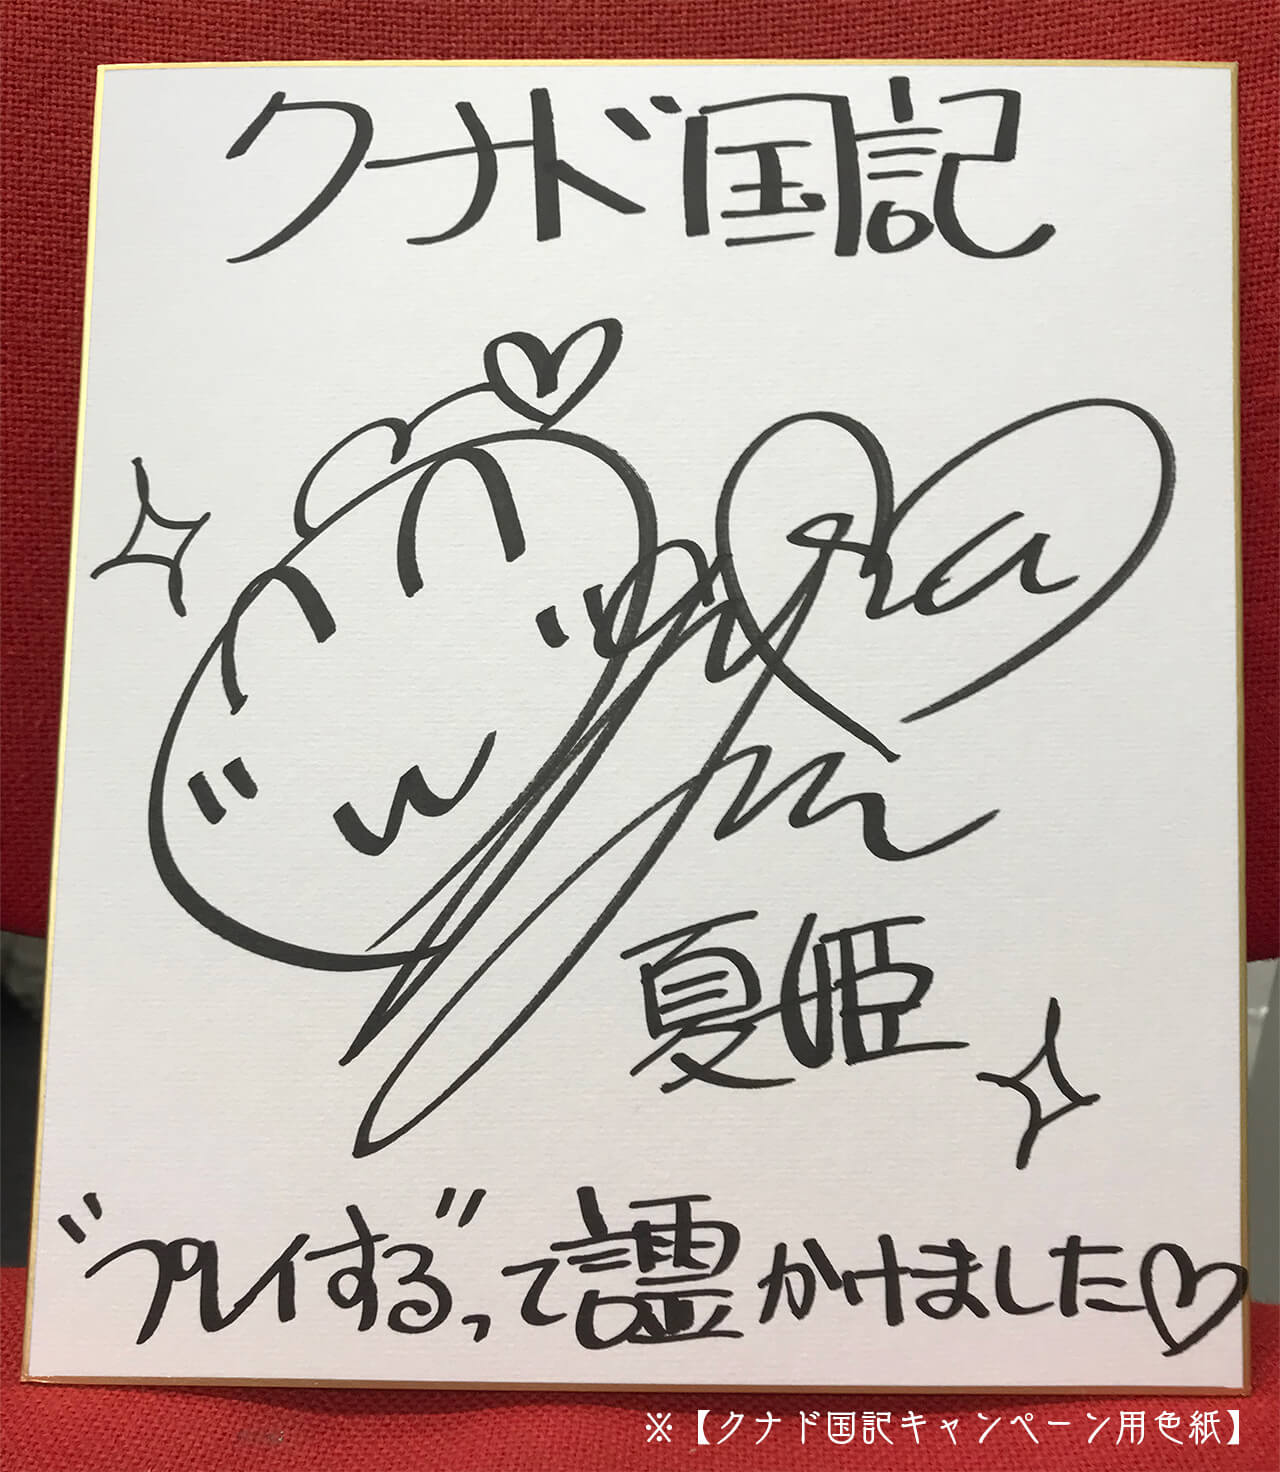 クナド国記
夏姫
"プレイする"って言霊かけました♡
※【クナド国記キャンペーン用色紙】